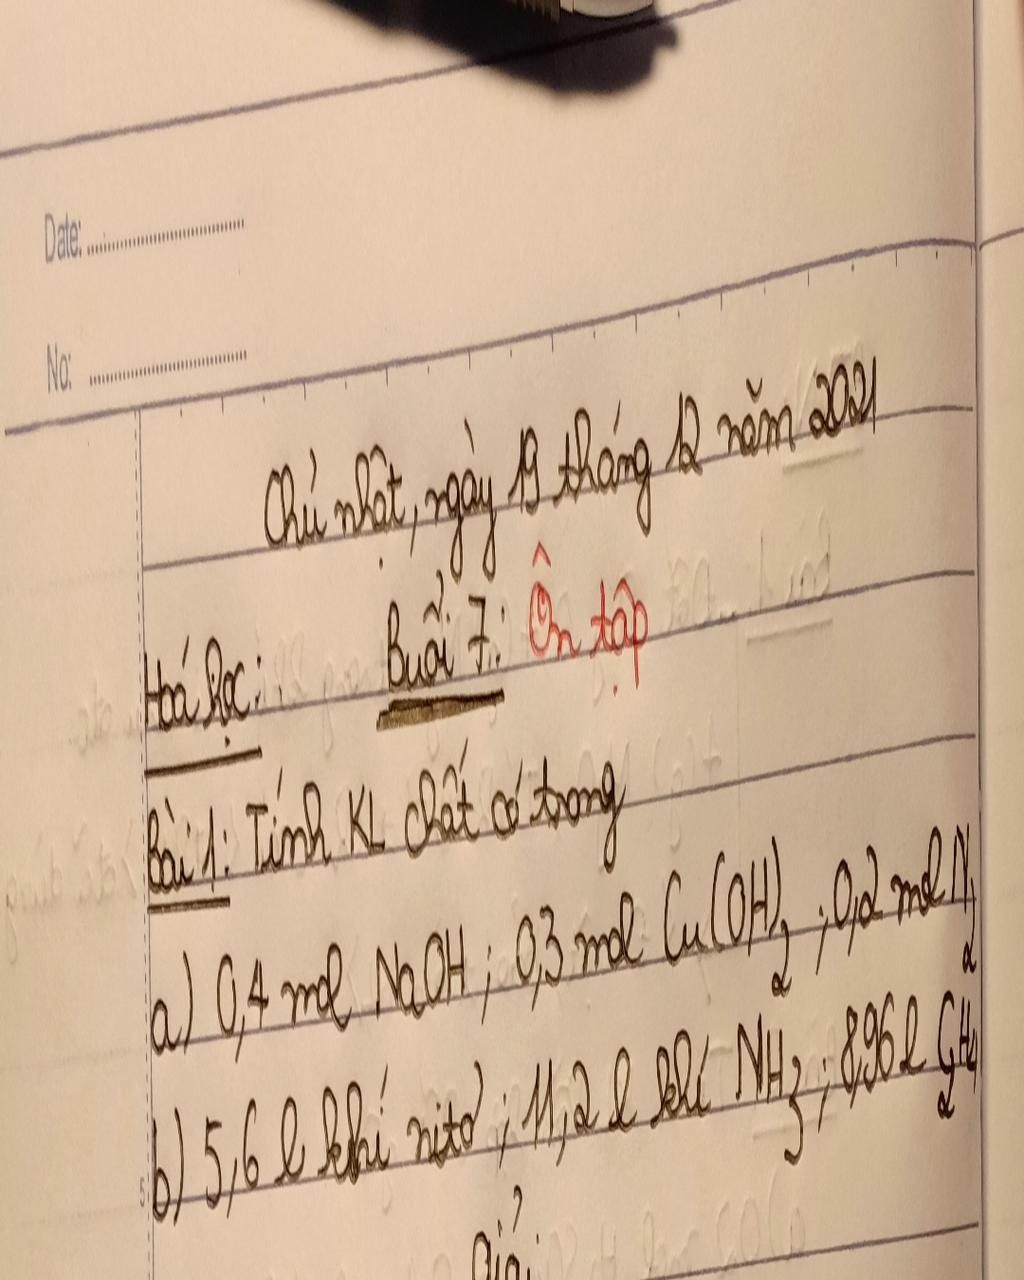 Date:
No:
Chủ nhật, ngày 19 tháng 12 năm 2021
Hoá học: Buổi 7: Ôn tập
Bài 1: Tính KL chất có trong
a) 0,4 mol NaOH ; 0,3 mol Cu(OH)₂ ; 0,2 mol N₂
b) 5,6 l khí nitơ ; 11,2 l khí NH₃ ; 8,96 l C₂H₄
Giải